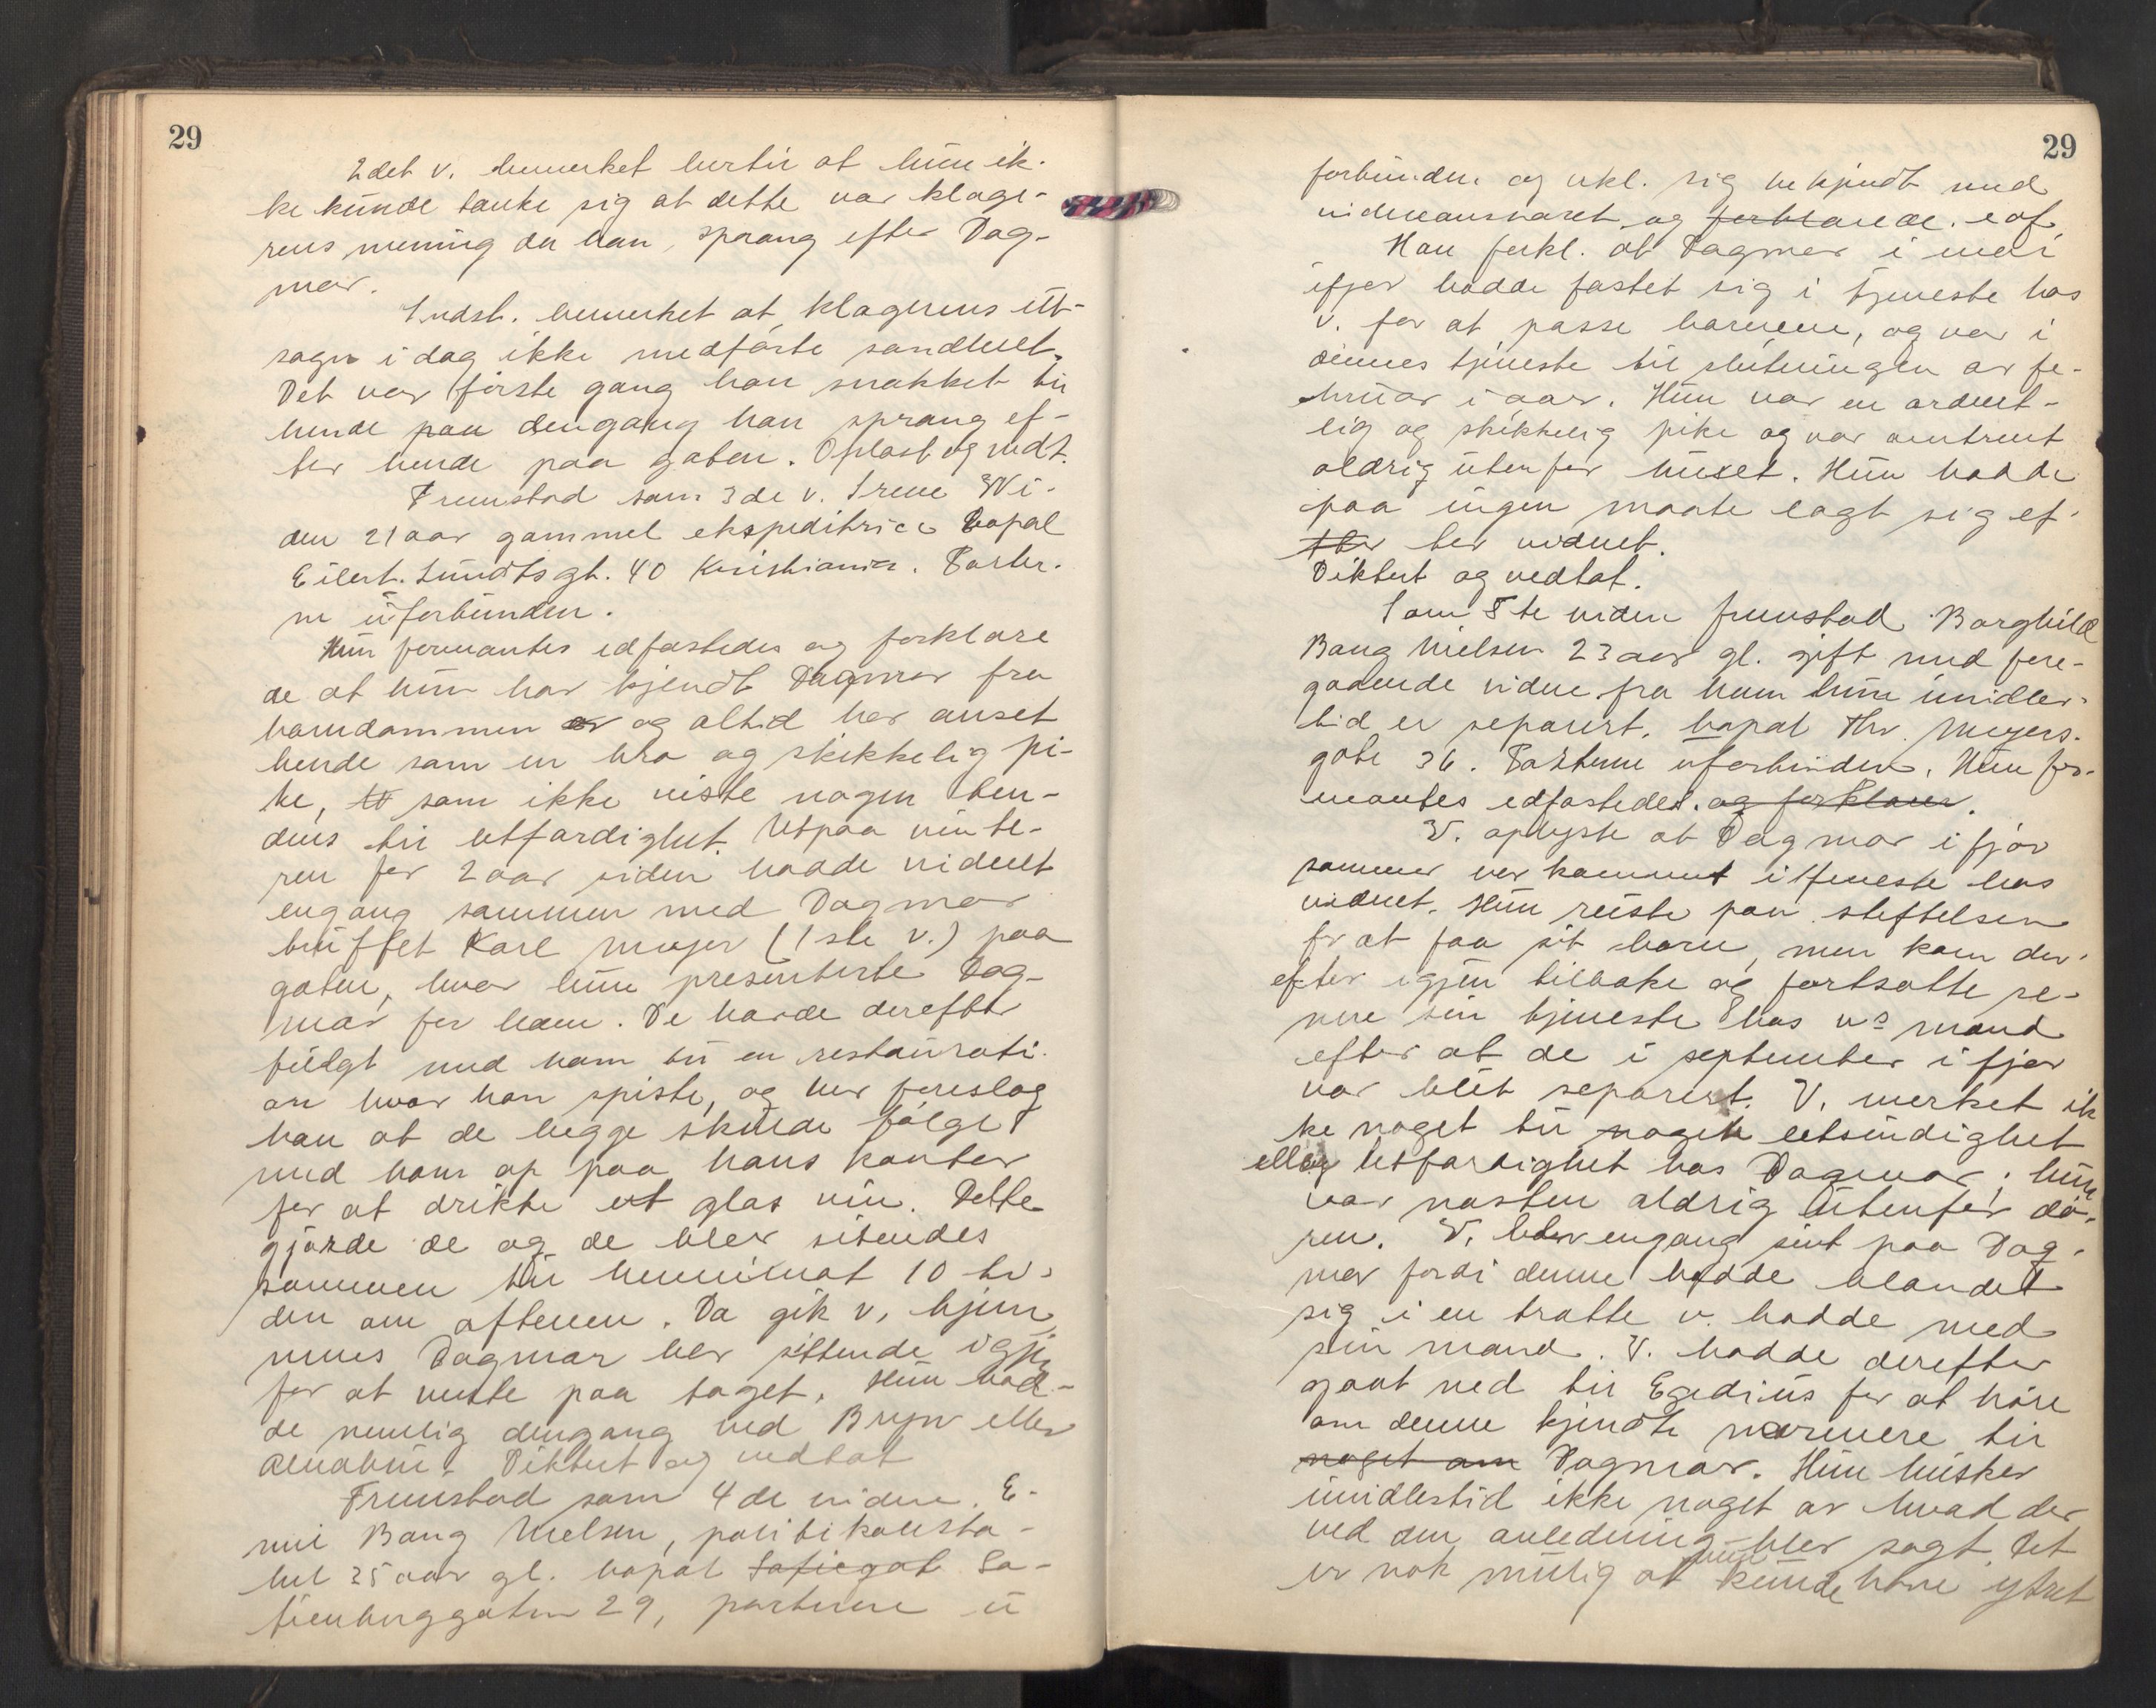 29
2det v. bemerket hertil at hun ik-
ke kunde tænke sig at dette var klage-
rens mening da han sprang efter Dag-
mar.
Indst. bemerket at klagerens ut-
sagn i dag ikke medførte sandhet.
Det var første gang han snakket til
hende paa dengang han sprang ef-
ter hende paa gaten. Oplæst og vedt.
Fremstod som 3de v. Irene Wi-
den 21 aar gammel ekspeditrice bopæl
Eilert Sundts gt. 40 Kristiania. Parter-
ne uforbunden.
Hun formantes edfæstedes og forklare
de at hun har kjendt Dagmar fra
barndommen av og altid har anset
hende som en bra og skikkelig pi-
ke, som ikke viste nogen ten-
dens til letfærdighet. Utpaa vinte-
ren for 2 aar siden hadde vidnet
engang sammen med Dagmar
truffet Karl Mayer (1ste v.) paa
gaten, hvor hun presenterte Dag-
mar for ham. De havde derefter
fulgt med ham til en restaurati-
on hvor han spiste, og her foreslog
han at de begge skulde følge
med ham op paa hans kontor
for at drikke et glas vin. Dette
gjorde de og de blev sitendes
sammen til henimot 10 ti-
den om aftenen. Da gik v. hjem
mens Dagmar blev sittende igjen
for at vente paa toget. Hun bod-
de nemlig dengang ved Bryn eller
Alnabru. Diktert og vedtat
Fremstod som 4de vidne. E-
mil Bang Nielsen, politikonsta-
bel 25 aar gl. bopæl Sofiegat So-
fienberggaten 29, parterne u
29
forbunden og erkl. sig bekjendt med
vidneansvaret og forklarede. edf.
Han forkl. at Dagmar i mai
ifjor hadde fæstet sig i tjeneste hos
v. for at passe barnene, og var i
dennes tjeneste til slutningen av fe-
bruar i aar. Hun var en ordent-
lig og skikkelig pike og var omtrent
aldrig utenfor huset. Hun hadde
paa ingen maate lagt sig ef-
ter ter vidnet.
Diktert og vedtat.
Som 5te vidne fremstod Borghild
Bang Nielsen 23 aar gl. gift med fore-
gaaende vidne fra hvem hun imidler-
tid er separert, bopæl Thv. Meyers-
gate 36. Parterne uforbunden. Hun for-
mantes edfæstedes. og forklarer.
V. oplyste at Dagmar i fjor
sommer var kommet i tjeneste hos
vidnet. Hun reiste paa stiftelsen
for at faa sit barn, men kom der-
efter igjen tilbake og fortsatte se-
nere sin tjeneste hos v.s mand
efter at de i september i fjor
var blet separert. V. merket ik
ke noget til nogen letsindighet
eller letfærdighet hos Dagmar; hun
var næsten aldrig utenfor dø-
ren. V. blev engang sint paa Dag-
mar fordi denne hadde blandet
sig i en trætte v. hadde med
sin mand. V. hadde derefter
gaat ned til Egedius for at høre
om denne kjendte nærmere til
noget om Dagmar. Hun husker
imidlertid ikke noget av hvad der
ved den anledning blev sagt. Det
er nok mulig at hun kunde have ytret